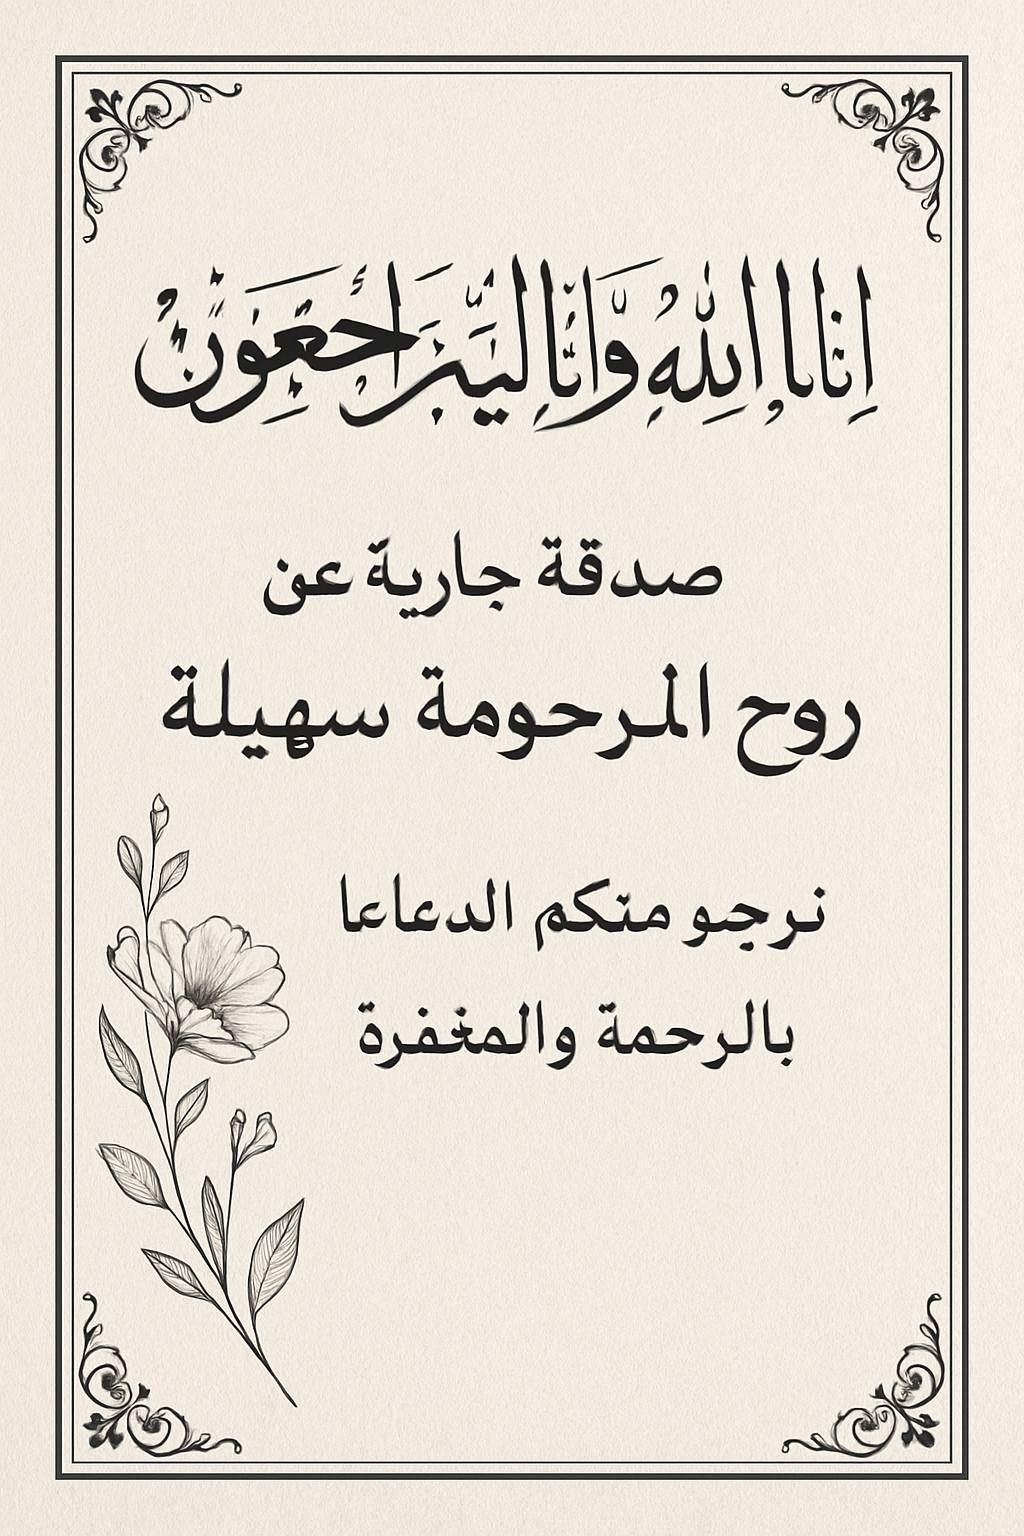 انانا الله وانا اليه راجعون
صدقة جارية عن
روح المرحومة سهيلة
نرجو منكم الدعاعا
بالرحمة والمغفرة